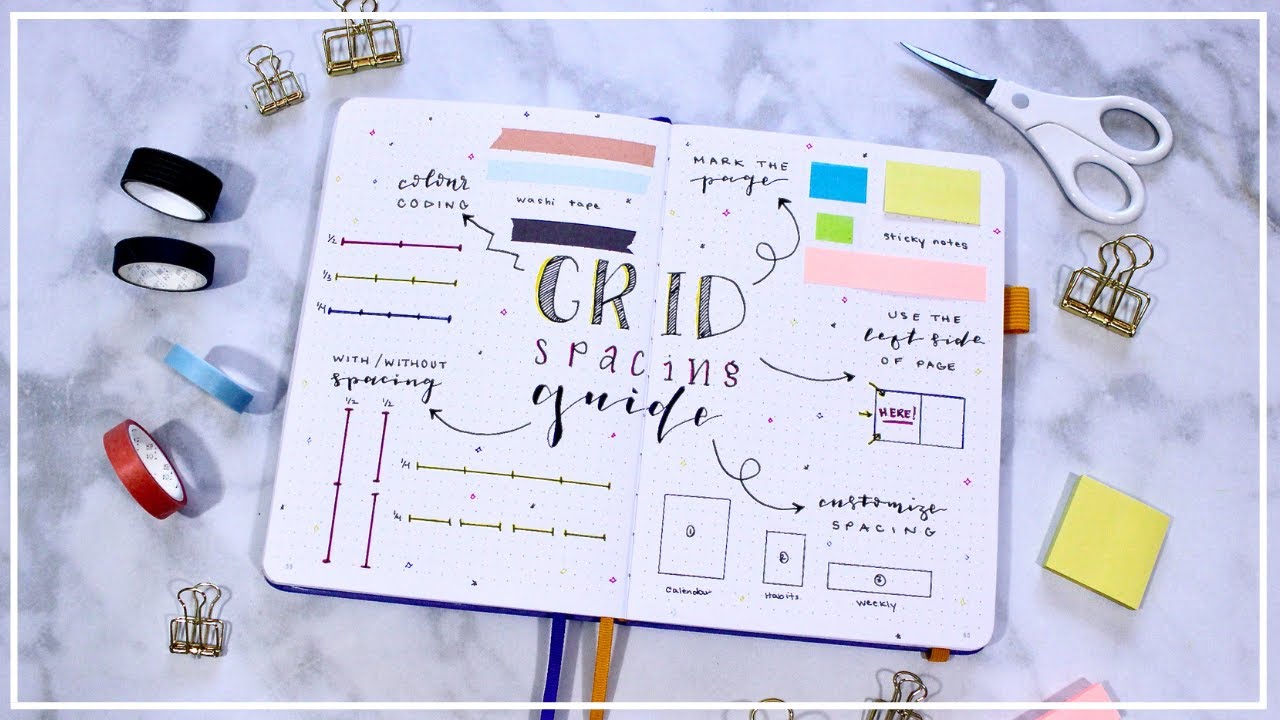 colour
CODING
washi tape
1/2
1/3
1/4
WITH/WITHOUT
spacing
1/2 1/2
1/4
1/4
GRID
spacing
guide
MARK THE
page
sticky notes
USE THE
left side
OF PAGE
HERE!
customize
SPACING
1
Calendar
2
Habits
3
Weekly